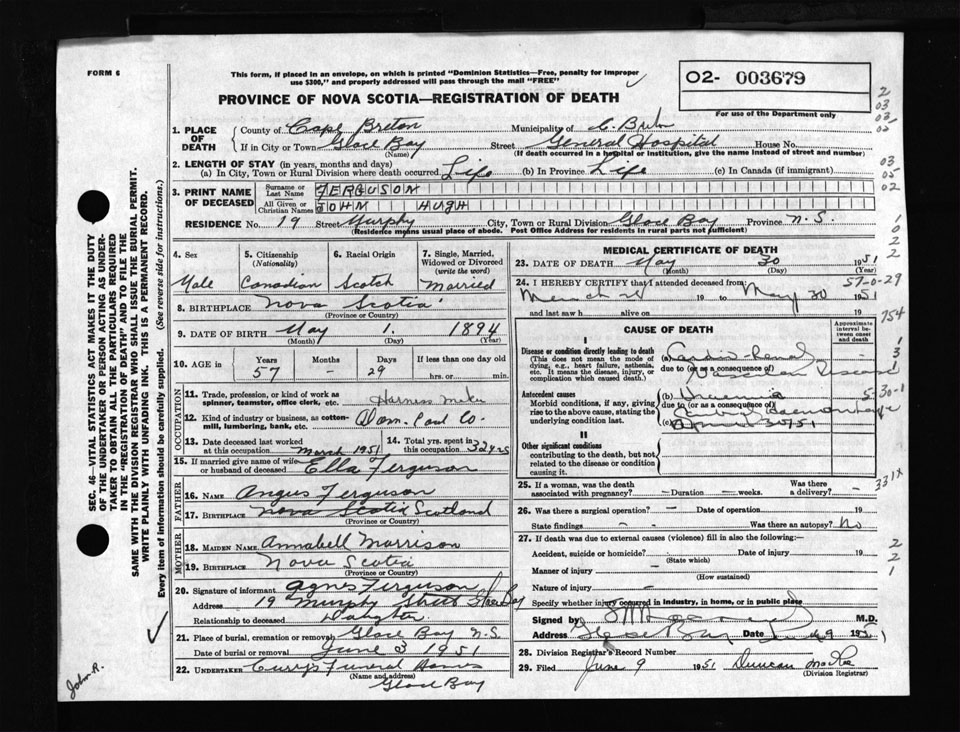 FORM 6
This form, if placed in an envelope, on which is printed "Dominion Statistics—Free, penalty for improper
use $300," and properly addressed will pass through the mail "FREE"
PROVINCE OF NOVA SCOTIA—REGISTRATION OF DEATH
02- 003679
For use of the Department only
2
03
03
02
03
05
02
1. PLACE OF DEATH
County of Cape Breton Municipality of C. Breton
If in City or Town Glace Bay Street General Hospital House No.
(Name) (If death occurred in a hospital or institution, give the name instead of street and number)
2. LENGTH OF STAY (in years, months and days)
(a) In City, Town or Rural Division where death occurred Life (b) In Province Life (c) In Canada (if immigrant)
3. PRINT NAME OF DECEASED
Surname or Last Name FERGUSON
All Given or Christian Names JOHN HUGH
RESIDENCE No. 19 Street Murphy City, Town or Rural Division Glace Bay Province N.S.
(Residence means usual place of abode. Post Office Address for residents in rural parts not sufficient)
4. Sex 5. Citizenship (Nationality) 6. Racial Origin 7. Single, Married, Widowed or Divorced (write the word)
Male Canadian Scotch Married
8. BIRTHPLACE Nova Scotia
(Province or Country)
9. DATE OF BIRTH May 1. 1894
(Month) (Day) (Year)
10. AGE in Years Months Days If less than one day old
57 - 29 hrs. or min.
OCCUPATION
11. Trade, profession, or kind of work as spinner, teamster, office clerk, etc. Harness Maker
12. Kind of industry or business, as cotton-mill, lumbering, bank, etc. Dom. Coal Co.
13. Date deceased last worked at this occupation March 1951 14. Total yrs. spent in this occupation 32 yrs
15. If married give name of wife or husband of deceased Ella Ferguson
FATHER
16. Name Angus Ferguson
17. Birthplace Nova Scotia Scotland
(Province or Country)
MOTHER
18. Maiden Name Annabell Morrison
19. Birthplace Nova Scotia
(Province or Country)
20. Signature of informant Agnes Ferguson
Address 19 Murphy Street Glace Bay
Relationship to deceased Daughter
21. Place of burial, cremation or removal Glace Bay N.S.
Date of burial or removal June 3 1951
22. UNDERTAKER Curry's Funeral Home
(Name and address)
Glace Bay
MEDICAL CERTIFICATE OF DEATH
23. DATE OF DEATH May 30 1951
(Month) (Day) (Year)
24. I HEREBY CERTIFY that I attended deceased from 57-0-29
March 19 to May 30 1951
and last saw h alive on 19
754
CAUSE OF DEATH
Approximate interval between onset and death
I
Disease or condition directly leading to death
(This does not mean the mode of dying, e.g., heart failure, asthenia, etc. It means the disease, injury, or complication which caused death.
(a) Cardio-Renal
due to (or as a consequence of)
Vascular Disease
Antecedent causes
Morbid conditions, if any, giving rise to the above cause, stating the underlying condition last.
(b) Uraemia
due to (or as a consequence of)
(c) Cerebral Haemorrhage
5-30-1
II
Other significant conditions
contributing to the death, but not related to the disease or condition causing it.
25. If a woman, was the death associated with pregnancy? – Duration – weeks. Was there a delivery? –
331X
26. Was there a surgical operation? – Date of operation 19
State findings - - Was there an autopsy? No
27. If death was due to external causes (violence) fill in also the following:—
Accident, suicide or homicide? Date of injury 19
(State which)
Manner of injury –
(How sustained)
Nature of injury –
Specify whether injury occurred in industry, in home, or in public place
Signed by M.D.
Address Glace Bay Date 1951
28. Division Registrar's Record Number
29. Filed June 9 1951 Duncan
(Division Registrar)
SEC. 46—VITAL STATISTICS ACT MAKES IT THE DUTY
OF THE UNDERTAKER OR PERSON ACTING AS UNDER-
TAKER TO OBTAIN ALL THE PARTICULARS REQUIRED
IN THE "REGISTRATION OF DEATH" AND TO FILE THE
SAME WITH THE DIVISION REGISTRAR WHO SHALL ISSUE THE BURIAL PERMIT.
WRITE PLAINLY WITH UNFADING INK. THIS IS A PERMANENT RECORD.
Every item of information should be carefully supplied. (See reverse side for instructions.)
John R.